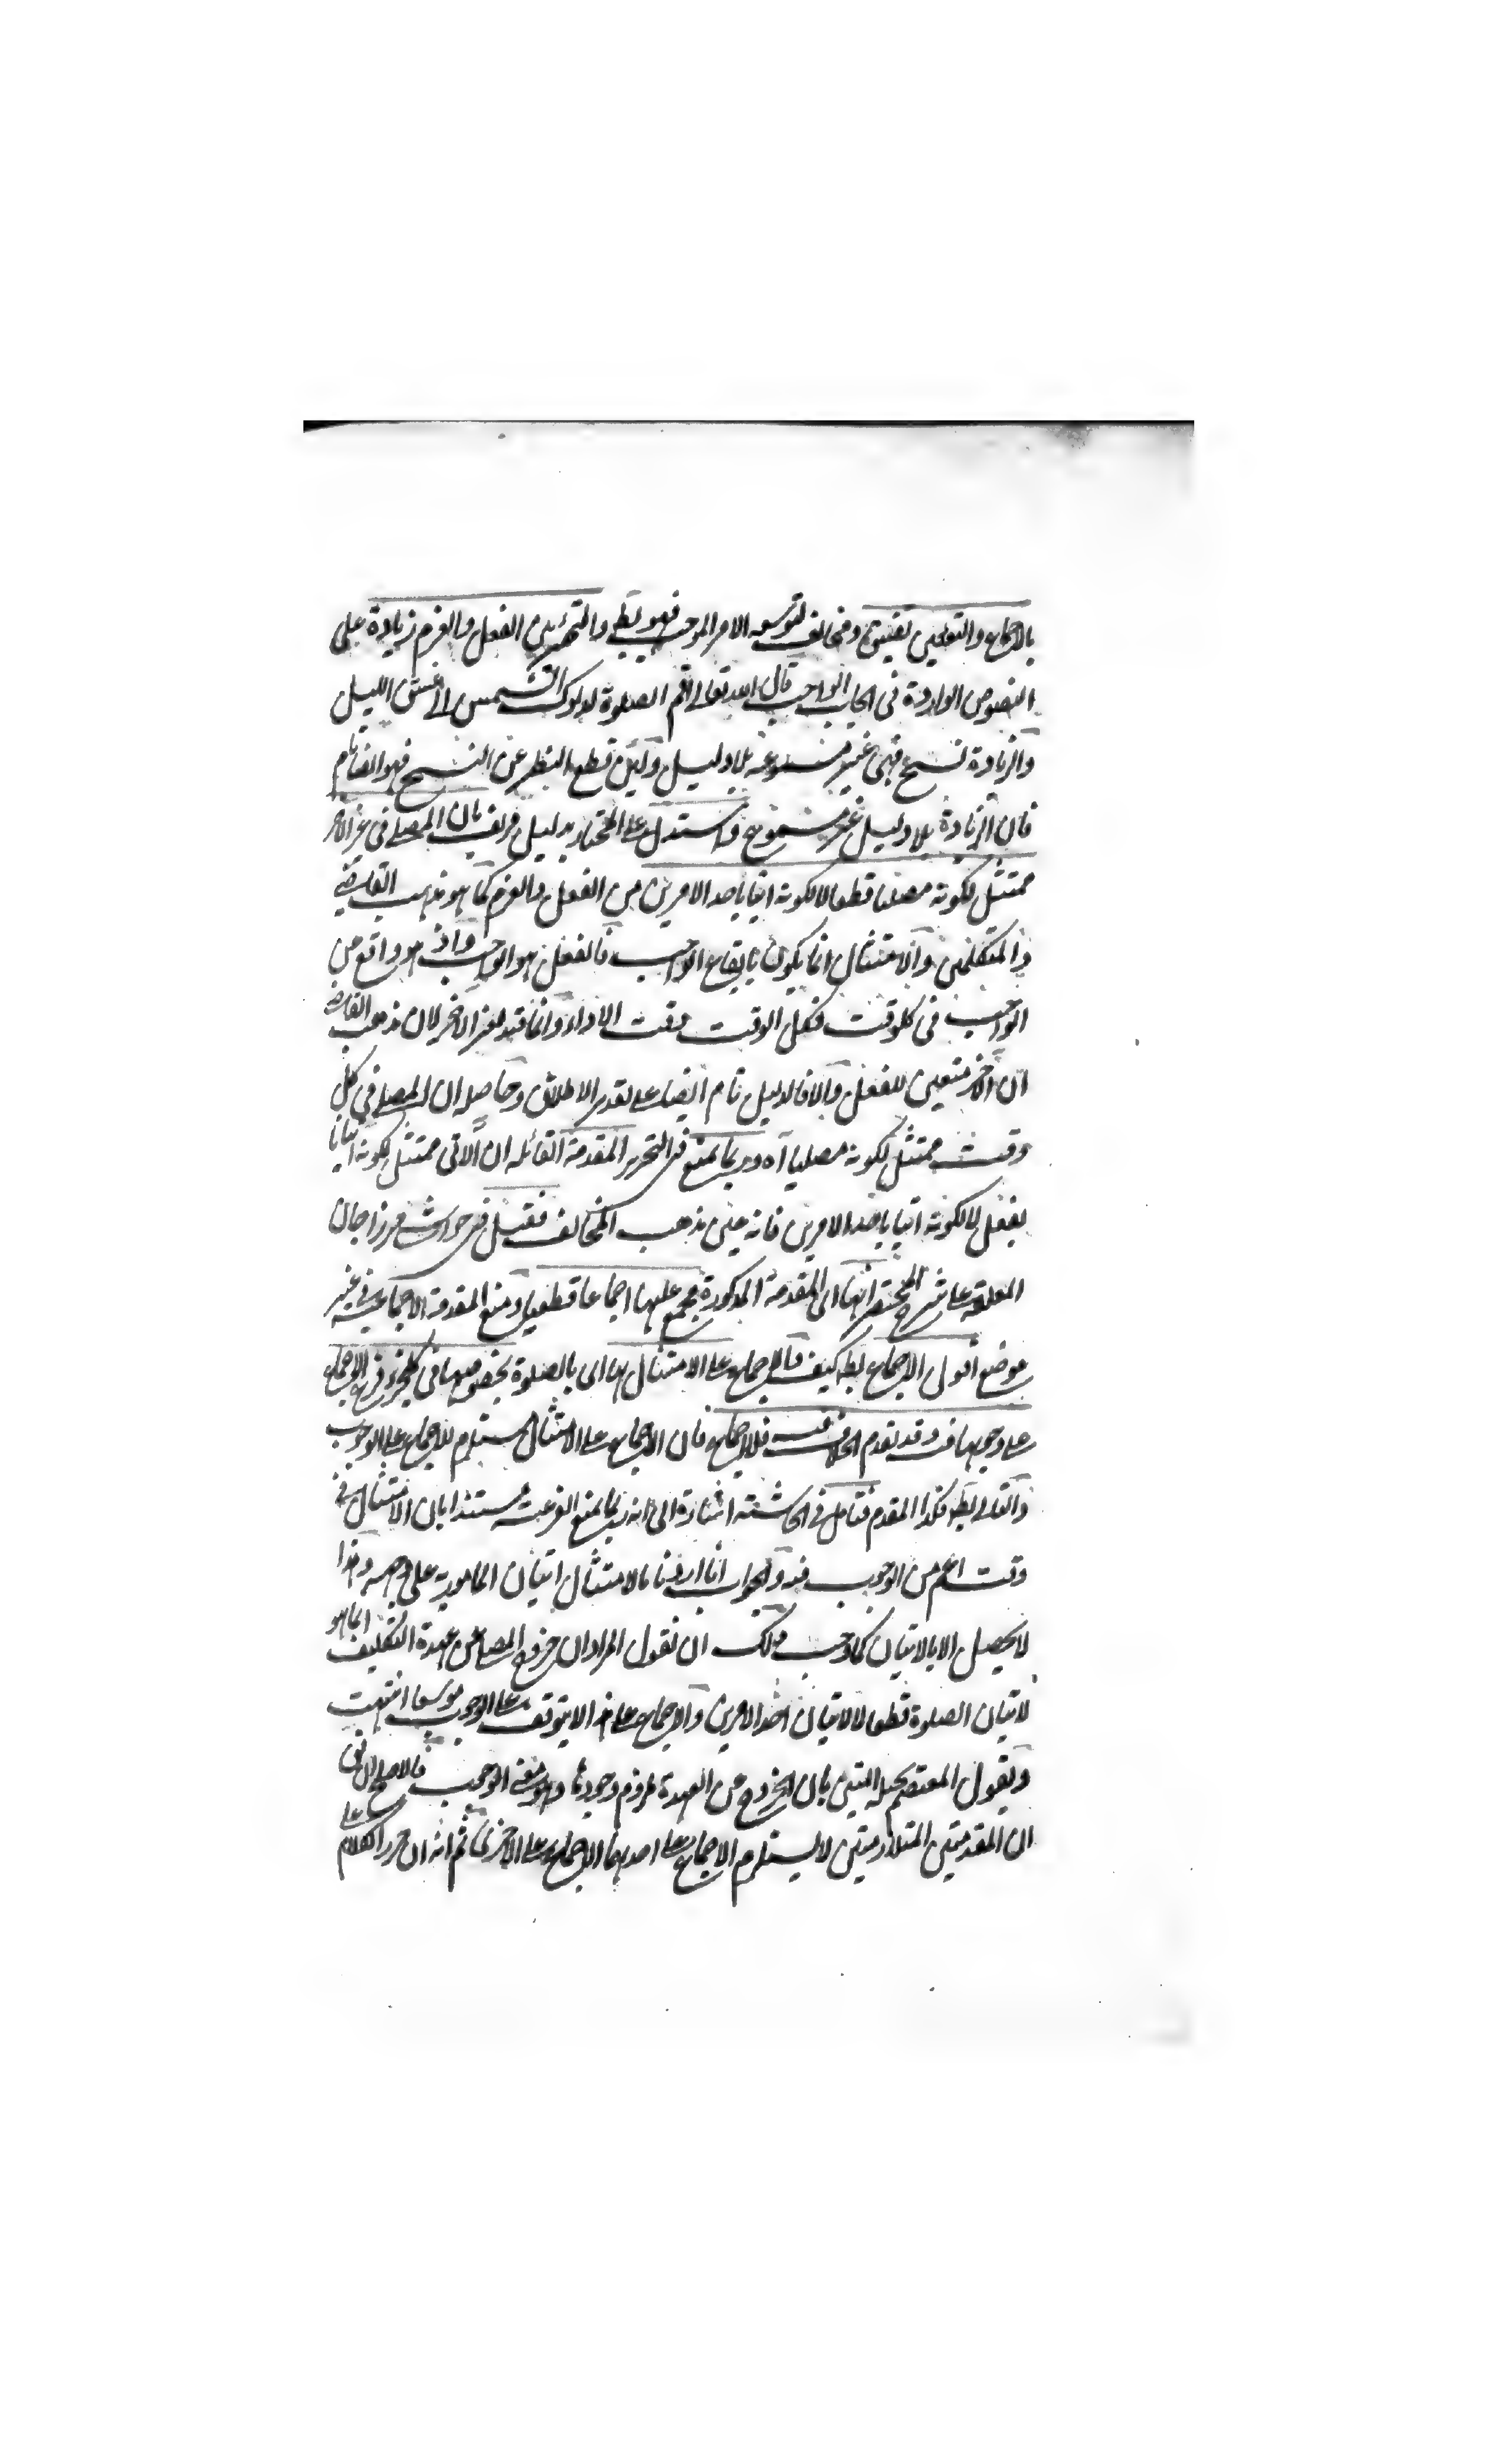 بالاجماع والتعيين تضييق ومخالف لتوسعه الامر الموجب فهو بط والتخيير بين الفعل والعزم زيادة على
النصوص الواردة فى ايجاب الواجب قال الله تعالى اقم الصلوة لدلوك الشمس الى غسق الليل
والزيادة نسخ فهى غير مسموعة بلا دليل ولئن قطع النظر عن النسخ فهو ايضا تام
فان الزيادة بلا دليل غير مسموع واستدل على المختار بدليل مزيف بان المصلى فى غير الاخر
ممتثل لكونه مصليا قطعا لا لكونه اتيا باحد الامرين من الفعل والعزم كما هو مذهب القاضى
والمتكلمين والامتثال انما يكون بايقاع الواجب فالفعل هو الواجب واذ هو واقع من
الواجب فى كل وقت فكل الوقت وقت الاداء وانما قيد بغير الاخر لان مذهب القاضى
ان الاخر متعين للفعل والا فالدليل تام ايضا على تقدير الاطلاق وحاصله ان المصلى فى كل
وقت ممتثل لكونه مصليا آه وربما يمنع فى التحرير المقدمة القائله ان الاتى ممتثل لكونه اتيانا
بفعل لا لكونه اتيا باحد الامرين فانه عين مذهب المخالف فقيل فى حواشى مرزا جان
المعلقة على شرح المختصر انها اى المقدمة المذكورة مجمع عليها اجماعا قطعيا ومنع المقدمة الاجماعية فى غير
موضع اقول الاجماع بط كيف والاجماع على الامتثال بها اى بالصلوة بخصوصها فى كل جزء فرع الاجماع
على وجوبها فيه وقد تقدم الخلاف فيه فلا اجماع فان الاجماع على الامتثال مستلزم للاجماع على الوجوب
والتالى بط فكذا المقدم فتامل فى الحاشية اشارة الى انه ربما يمنع الفرعية مستندا بان الامتثال فى
وقت اعم من الوجوب فيه والجواب انا اردنا بالامتثال اتيان المامور به على وجهه وهذا
لا يحصل الا بالاتيان كما وجب ولك ان تقول المراد ان خروج المصلى عن عهدة التكليف انما هو
لاتيان الصلوة قطعا لا لاتيان احد الامرين والاجماع على هذا لا يتوقف على الوجوب موسعا انتهت
ويقول المعتصم بحبله المتين بان الخروج عن العهدة ملزوم وجود
ان المقدمتين المتلازمتين لا يستلزم الاجماع على احدهما الاجماع على الاخرى ثم انه ان حرر الكلام على